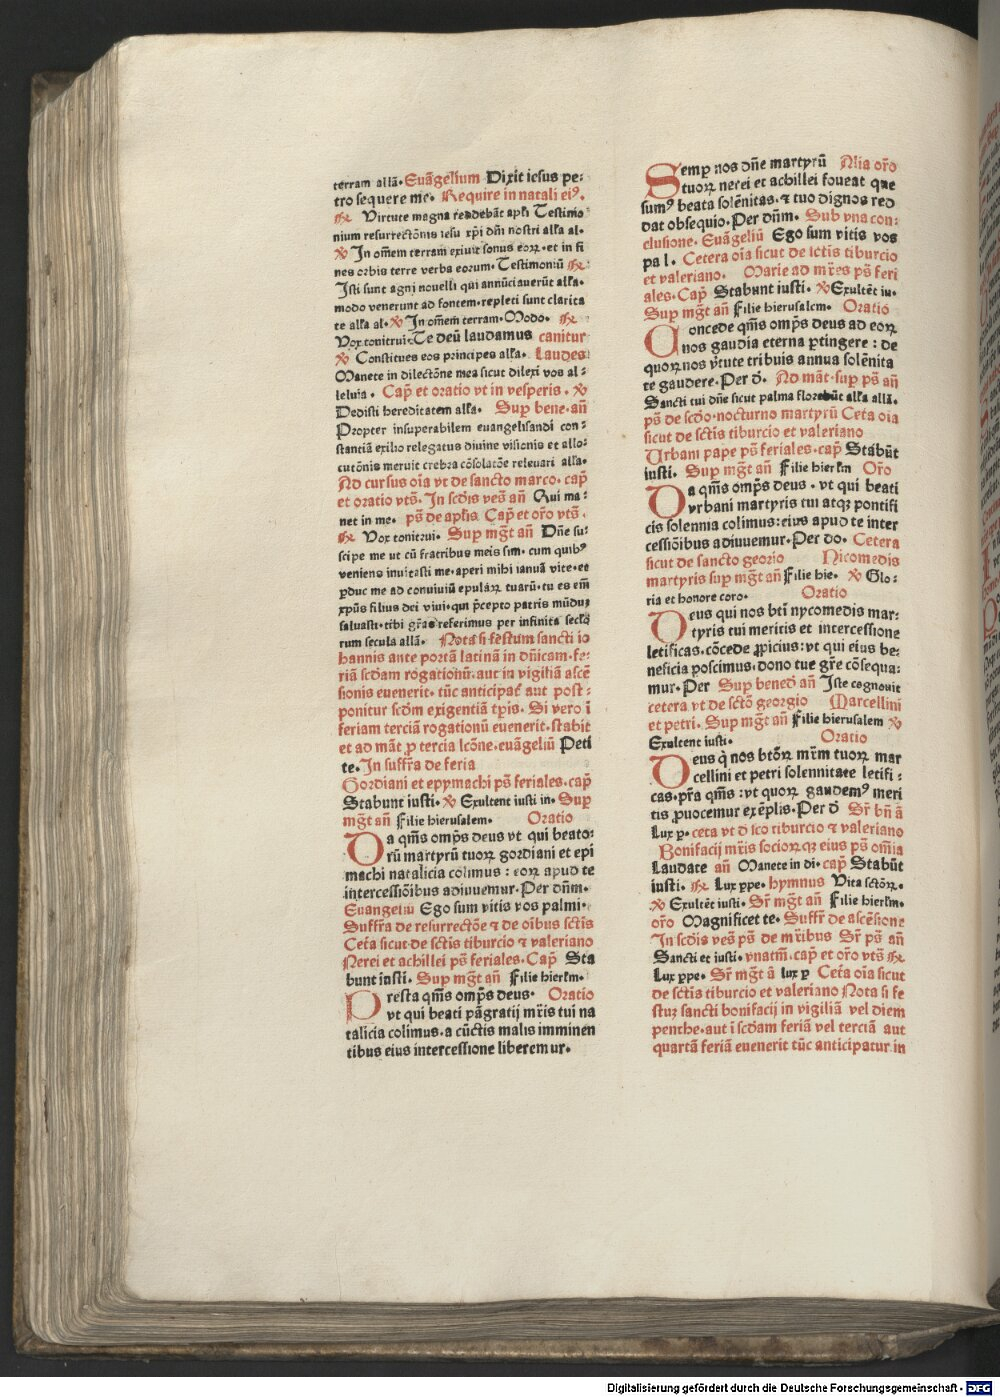 terram allā. Euāgelium Dixit iesus pe⸗
tro sequere me. Require in natali ei⁹.
℞ Virtute magna reddebāt apl̄i Testimo
nium resurrectōnis iesu xp̄i dn̄i nostri allā al.
℣ In om̄em terram exiuit sonus eoꝝ. et in fi
nes orbis terre verba eorum. Testimoniū ℞
Isti sunt agni nouelli qui annūciauerūt allā.
modo venerunt ad fontem. repleti sunt clarita
te allā al. ℣ In om̄em terram. Modo. ℞
Vox tonitrui. Te deū laudamus canitur
℣ Constitues eos principes allā. Laudes
Manete in dilectōne mea sicut dilexi vos al⸗
leluia. Cap̄ et oratio vt in vesperis. ℣
Dedisti hereditatem allā. Sup bene. añ
Propter insuperabilem euangelisandi con⸗
stantiā exilio relegatus diuine visionis et allo⸗
cutōnis meruit crebra cōsolatōe releuari allā.
Ad cursus oīa vt de sancto marco. cap̄
et oratio vts̄. In scd̄is ves̄ añ Qui ma⸗
net in me. ps̄ de apl̄is Cap̄ et orō vts̄.
℞ Vox tonitrui. Sup mḡt añ Dñe su⸗
scipe me ut cū fratribus meis sim. cum quib⁹
veniens inuitasti me. aperi mihi ianuā vite. et
ꝑduc me ad conuiuiū epulaꝝ tuarū. tu es em̄
xp̄us filius dei viui. qui p̄cepto patris mūduꝫ
saluasti. tibi gr̄as referimus per infinita secl̄o
rum secula allā. Nota si festum sancti io
hannis ante portā latinā in dn̄icam. fe⸗
riā scd̄am rogationū. aut in vigiliā ascē
sionis euenerit. tūc anticipat̄ aut post⸗
ponitur scd̄m exigentiā tp̄is. Si vero ī
feriam terciā rogationū euenerit. stabit
et ad māt ꝓ tercia lcōne. euāgeliū Peti
te. In suffr̄a de feria
Gordiani et epymachi ps̄ feriales. cap̄
Stabunt iusti. ℣ Exultent iusti in. Sup
mḡt añ Filie hierusalem. Oratio
Da qm̄s omp̄s deus vt qui beato⸗
rū martyrū tuoꝝ gordiani et epi
machi natalicia colimus : eoꝝ apud te
intercessiōibus adiuuemur. Per dn̄m.
Euangeliū Ego sum vitis vos palmi.
Suffr̄a de resurrectōe ⁊ de oībus sc̄tis
Cet̄a sicut de sc̄tis tiburcio ⁊ valeriano
Nerei et achillei ps̄ feriales. Cap̄ Sta
bunt iusti. Sup mḡt añ Filie hierl̄m.
Presta qm̄s omp̄s deus. Oratio
vt qui beati pāgratij mr̄is tui na
talicia colimus. a cūctis malis imminen
tibus eius intercessione liberemur.
Semꝑ nos dñe martyrū Alia orō
tuoꝝ nerei et achillei foueat que
sum⁹ beata solēnitas. ⁊ tuo dignos red
dat obsequio. Per dn̄m. Sub vna con⸗
clusione. Euāgeliū Ego sum vitis vos
pal. Cetera oīa sicut de sctis tiburcio
et valeriano. Marie ad mr̄es ps̄ feri
ales. Cap̄ Stabunt iusti. ℣ Exultēt iu.
Sup mḡt añ Filie hierusalem. Oratio
Concede qm̄s omp̄s deus ad eoꝝ
nos gaudia eterna ꝑtingere : de
quoꝝ nos v̄tute tribuis annua solēnita
te gaudere. Per d̄. Ad māt. sup ps̄ añ
Sancti tui dñe sicut palma florebūt allā allā.
ps̄ de scd̄o. nocturno martyrū Cet̄a oīa
sicut de sc̄tis tiburcio et valeriano
Vrbani pape ps̄ feriales. cap̄ Stabūt
iusti. Sup mḡt añ Filie hierl̄m Orō
Da qm̄s omp̄s deus. vt qui beati
vrbani martyris tui atqꝫ pontifi
cis solennia colimus: eius apud te inter
cessiōibus adiuuemur. Per do. Cetera
sicut de sancto georio Nicomedis
martyris sup mḡt añ Filie hie. ℣ Glo⸗
ria et honore coro. Oratio
Deus qui nos bt̄i nycomedis mar⸗
tyris tui meritis et intercessione
letificas. cōcede ꝓpicius: vt qui eius be⸗
neficia poscimus. dono tue gr̄e cōsequa⸗
mur. Per Sup bened̄ añ Iste cognouit
cetera vt de sc̄to georgio Marcellini
et petri. Sup mḡt añ Filie hierusalem ℣
Exultent iusti. Oratio
Deus q̄ nos bt̄oꝝ mr̄m tuoꝝ mar
cellini et petri solennitate letifi⸗
cas. pr̄a qm̄s : vt quoꝝ gaudem⁹ meri
tis ꝓuocemur exēplis. Per d̄ Sr̄ bn̄ ā
Lux ꝑ. ceta vt d̄ sco tiburcio ⁊ valeriano
Bonifacij mr̄is socioꝝqꝫ eius ps̄ om̄ia
Laudate añ Manete in di. cap̄ Stabūt
iusti. ℞ Lux ꝑpe. hymnus Vita sctōꝝ.
℣ Exultēt iusti. Sr̄ mḡt añ Filie hierl̄m.
orō Magnificet te. Suffr̄ de ascēsione
In scd̄is ves̄ ps̄ de mr̄ibus Sr̄ ps̄ añ
Sancti et iusti. vnatm̄. cap̄ et orō vts̄ ℞
Lux ꝑpe. Sr̄ mḡt ā lux ꝑ Cet̄a oīa sicut
de sc̄tis tiburcio et valeriano Nota si fe
stuꝫ sancti bonifacij in vigiliā vel diem
penthe. aut ī scd̄am feriā vel terciā aut
quartā feriā euenerit tūc anticipatur in
Digitalisierung gefördert durch die Deutsche Forschungsgemeinschaft - DFG